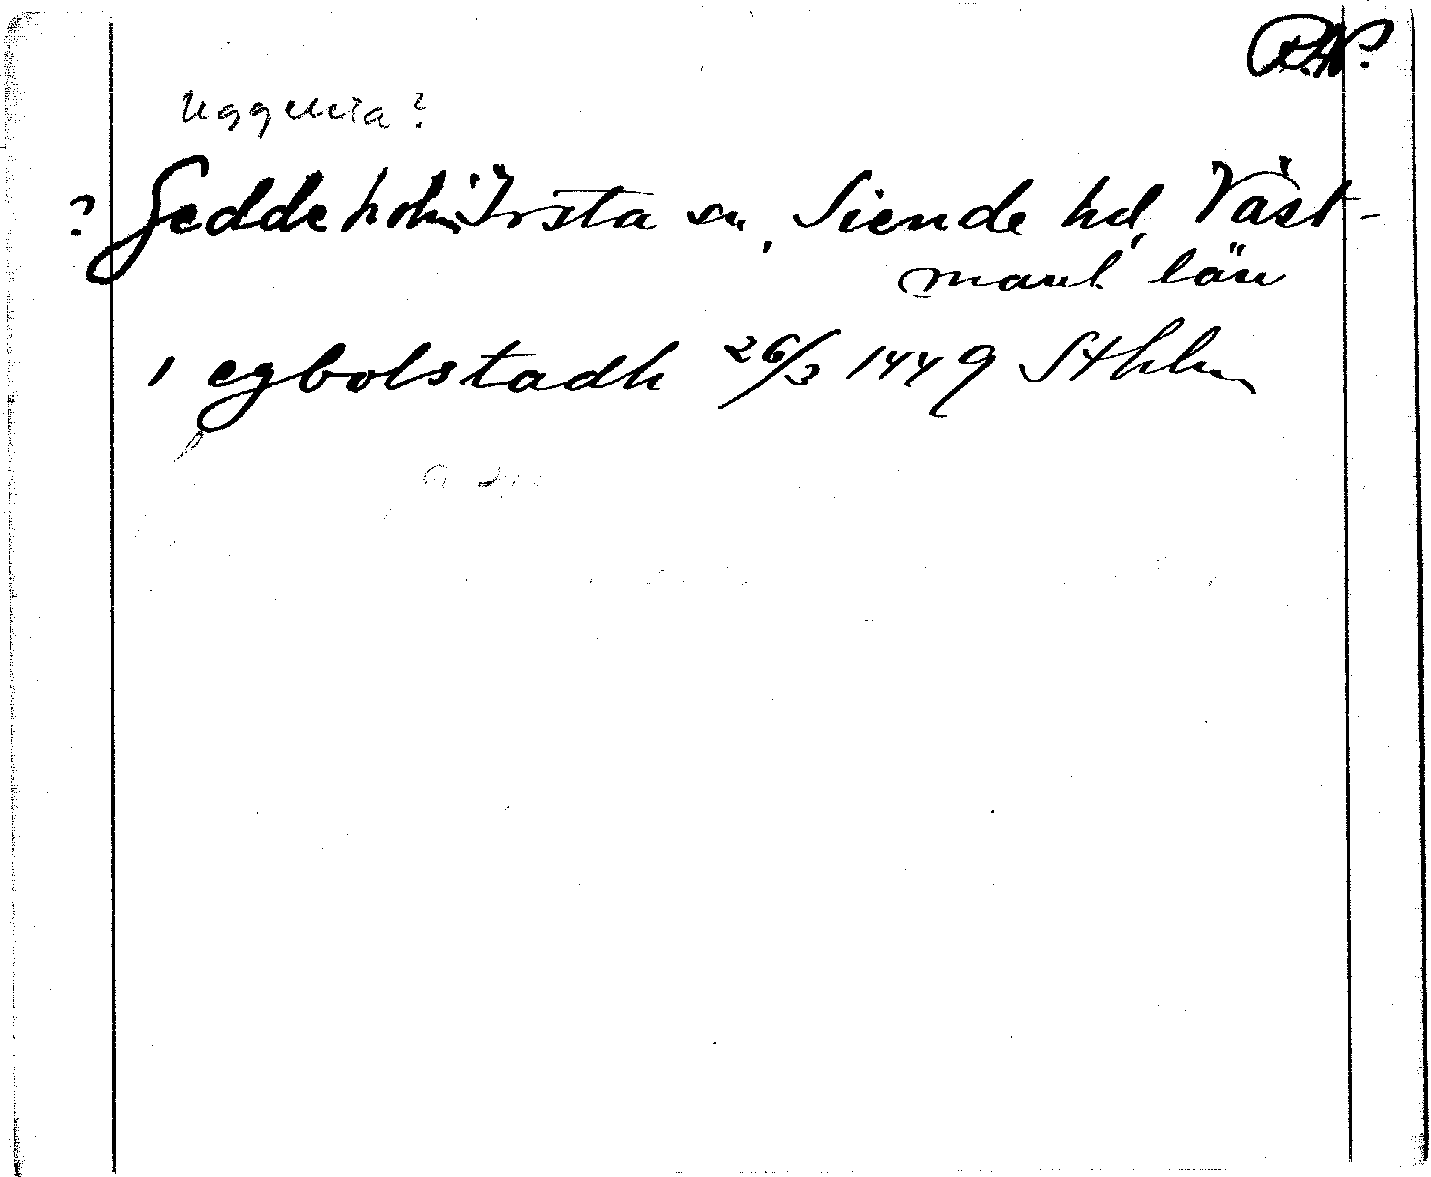 Uggelsta?
? Geddeholm Irsta sn, Siende hd, Väst-
manl. län
, egbolstadh 26/3 1449 Sthlm